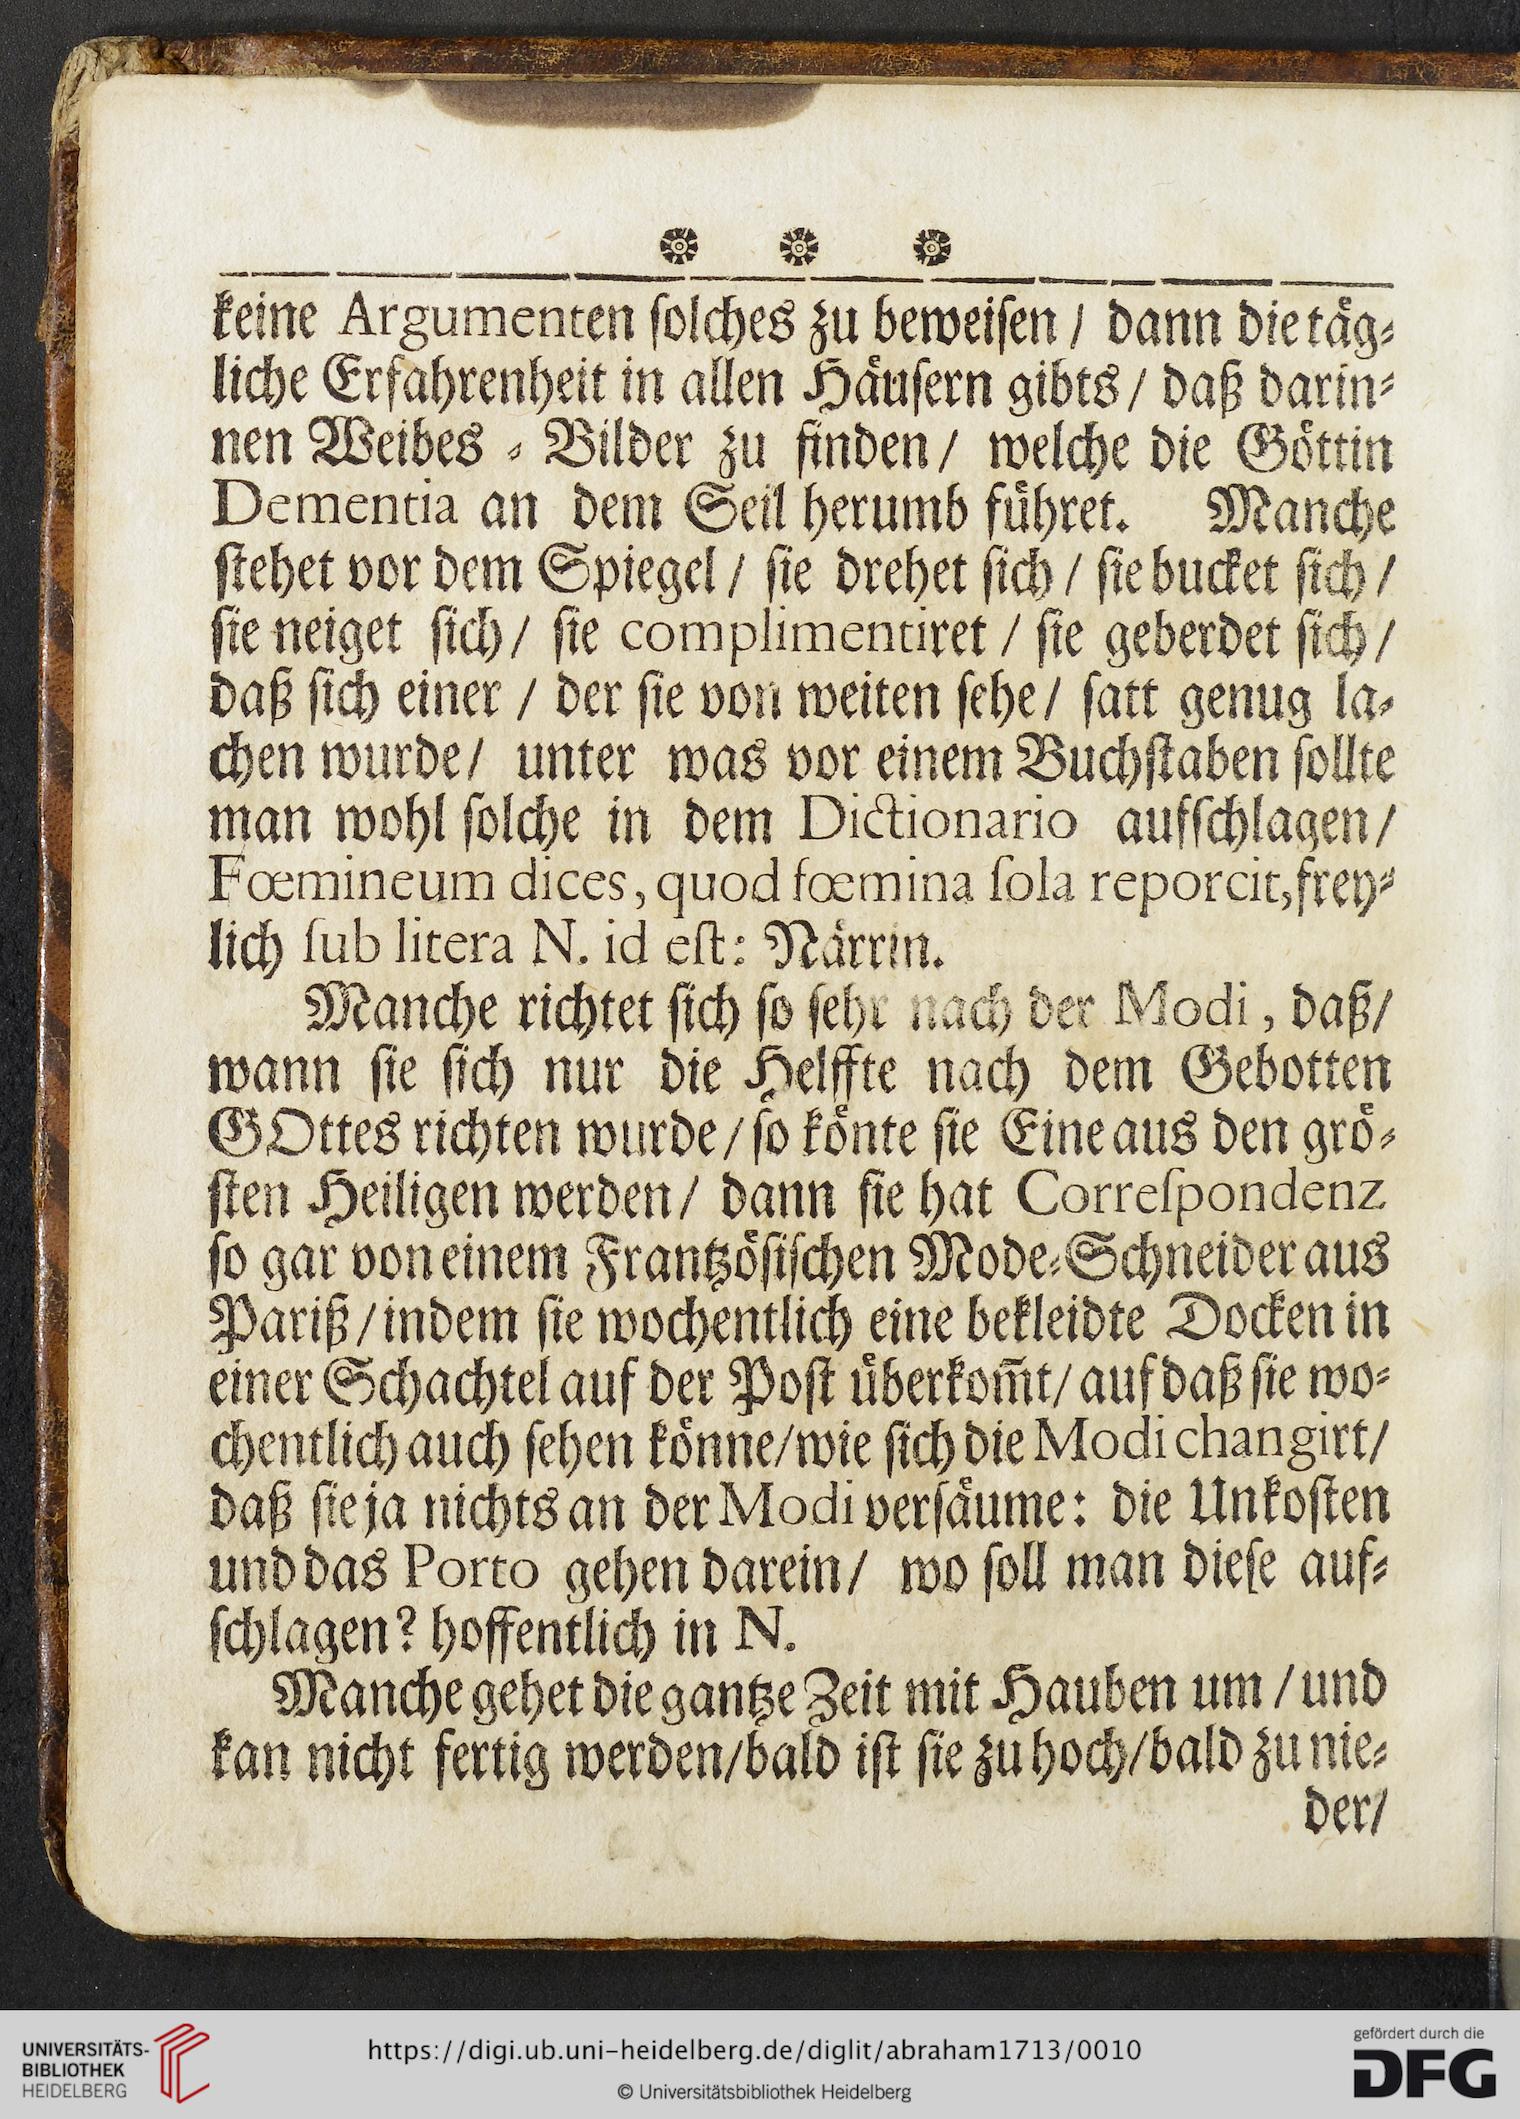 keine Argumenten ſolches zu beweiſen / dann die taͤg⸗
liche Erfahrenheit in allen Haͤuſern gibts / daß darin⸗
nen Weibes ⸗ Bilder zu finden / welche die Goͤttin
Dementia an dem Seil herumb fuͤhret. Manche
ſtehet vor dem Spiegel / ſie drehet ſich / ſie bucket ſich /
ſie neiget ſich / ſie complimentiret / ſie geberdet ſich /
daß ſich einer / der ſie von weiten ſehe / ſatt genug la⸗
chen wurde / unter was vor einem Buchſtaben ſollte
man wohl ſolche in dem Dictionario aufſchlagen /
Fœmineum dices, quod fœmina ſola reporcit, frey⸗
lich ſub litera N. id eſt: Naͤrrin.
Manche richtet ſich ſo ſehr nach der Modi, daß /
wann ſie ſich nur die Helffte nach dem Gebotten
GOttes richten wurde / ſo koͤnte ſie Eine aus den groͤ⸗
ſten Heiligen werden / dann ſie hat Correſpondenz
ſo gar von einem Frantzoͤſiſchen Mode⸗Schneider aus
Pariß / indem ſie wochentlich eine bekleidte Docken in
einer Schachtel auf der Poſt uͤberkom̃t / auf daß ſie wo⸗
chentlich auch ſehen koͤnne / wie ſich die Modi changirt /
daß ſie ja nichts an der Modi verſaͤume: die Unkoſten
und das Porto gehen darein / wo ſoll man dieſe auf⸗
ſchlagen? hoffentlich in N.
Manche gehet die gantze Zeit mit Hauben um / und
kan nicht fertig werden / bald iſt ſie zu hoch / bald zu nie⸗
der /
UNIVERSITÄTS-
BIBLIOTHEK
HEIDELBERG
https://digi.ub.uni-heidelberg.de/diglit/abraham1713/0010
© Universitätsbibliothek Heidelberg
gefördert durch die
DFG